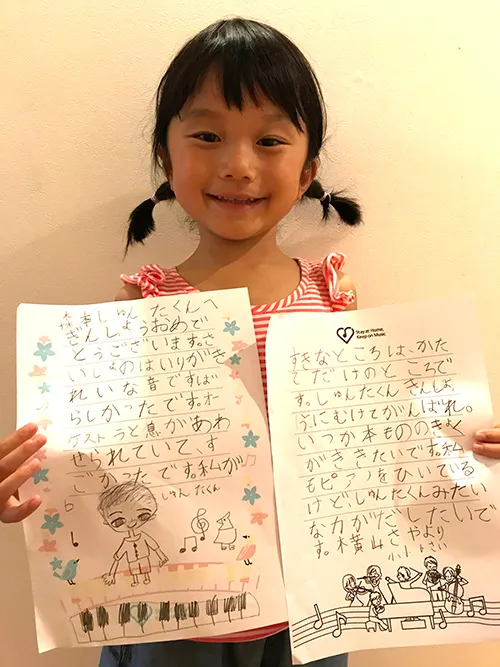 森本しゅんたくんへ
ぎんしょうおめで
とうございます。さ
いしょのはいりがき
れいな音ですば
らしかったです。オー
ケストラと息があわ
せられていて、す
ごかったです。私が
しゅんたくん
Stay at Home,
Keep on Music.
すきなところは、かた
てだけのところで
す。しゅんたくんきんしょ
うにむけてがんばれ。
いつか本もののきょく
がききたいです。私
もピアノをひいている
けど、しゅんたくんみたい
な力がだしたいで
す。横山さやより